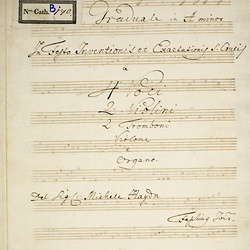 Nus. Cath. B/140
Graduale in A minor
In Festo Inventionis et Exaltationis S. Crucis
a
4 Voci
2 Violini
2 Tromboni
Violone
e
Organo.
Del Sig: Michele Haydn